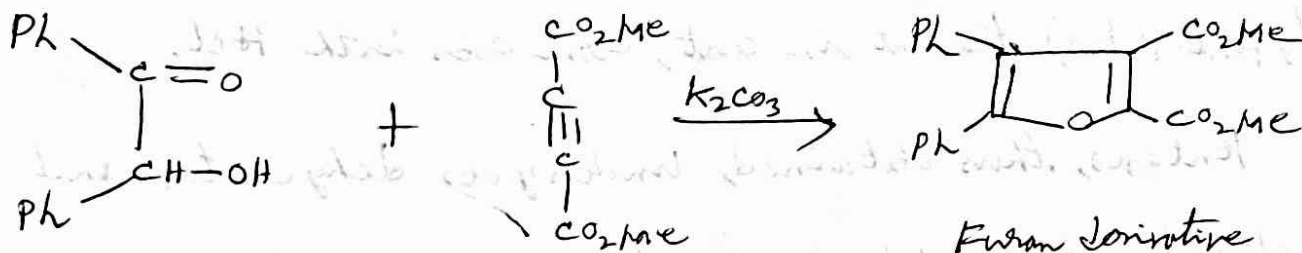 Ph
C=O
CH-OH
Ph
+
CO2Me
C
C
CO2Me
K2CO3
Ph
CO2Me
Ph
O
CO2Me
Furan derivative